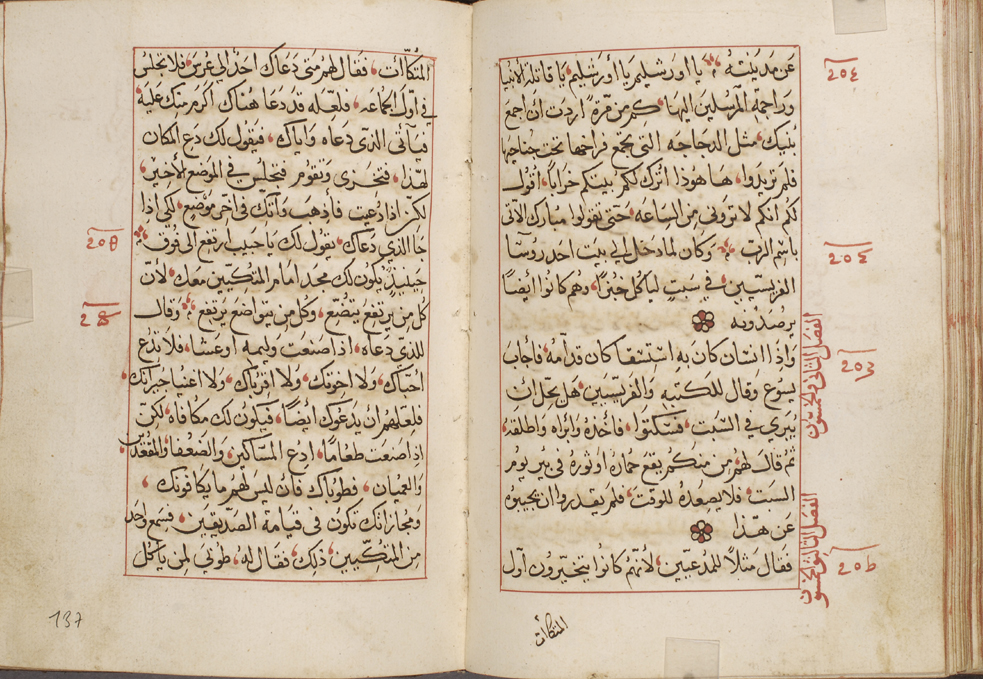 عن مدينته يا اورشليم يا أورشليم يا قاتلة الانبيا
وراجمة المرسلين اليها كم من مرة اردت ان اجمع
بنيك مثل الدجاجه التي تجمع فراخها تحت جناحيها
فلم تريدوا ها هوذا اترك لكم بيتكم خرابا اقول
لكم انكم لا تروني من الساعه حتى تقولوا مبارك الآتي
باسم الرب وكان لما دخل الي بيت احد روسآ
الفريسيين في سبت لياكل خبزا وهم كانوا أيضا
يرصدونه
واذا انسان كان به استسقا كان قدامه فأجاب
يسوع وقال للكتبه والفريسيين هل يحل ان
يبري في السبت فسكتوا فأخذه وابراه واطلقه
ثم قال لهم من منكم يقع حماره او ثوره في بير يوم
السبت فلا يصعده للوقت فلم يقدروا ان يجيبوه
عن هذا
فقال مثلا للمدعيين لأنهم كانوا يتخيرون أول
المتكآت
الفصل الثاني والخمسون
الفصل الثالث والخمسون
المتكآت فقال لهم متى دعاك احد الي عرس فلا تجلس
في اول الجماعه فلعله قد دعا هناك اكرم منك عليه
فيأتي الذي دعاه واياك فيقول لك دع المكان
لهذا فتخزى وتقوم فتجلس في الموضع الأخير
لكن اذا دعيت فأذهب واتك في آخر موضع لكي اذا
جا الذي دعاك يقول لك يا حبيب ارتفع الى فوق
حينيذ يكون لك مجد امام المتكيين معك لأن
كل من يرتفع يتضع وكل من يتواضع يرتفع وقال
للذي دعاه اذا صنعت وليمه او عشا فلا تدع
احباك ولا اخوتك ولا اقرباك ولا اغنيا جيرانك
فلعلهم ان يدعوك أيضا فيكون لك مكافاه لكن
اذا صنعت طعاما ادع المساكين والضعفا والمقعدين
والعميان فطوباك فان ليس لهم ما يكافونك
ومجازاتك تكون في قيامة الصديقين فسمع واحد
من المتكيين ذلك فقال له طوبي لمن ياكل
137